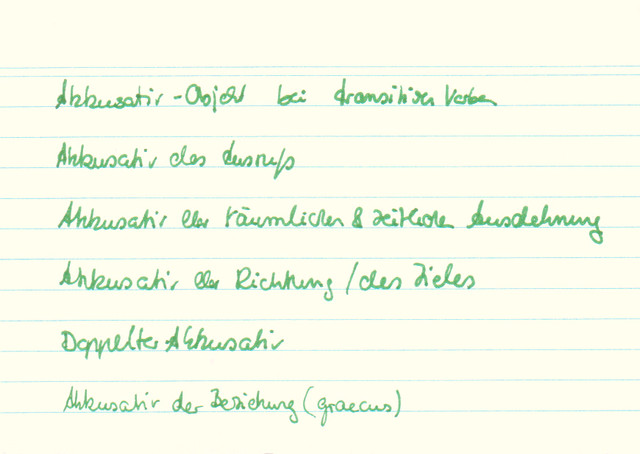 Akkusativ-Objekt bei transitiven Verben
Akkusativ des Ausrufs
Akkusativ der räumlichen & zeitlichen Ausdehnung
Akkusativ der Richtung / des Zieles
Doppelter Akkusativ
Akkusativ der Beziehung (graecus)